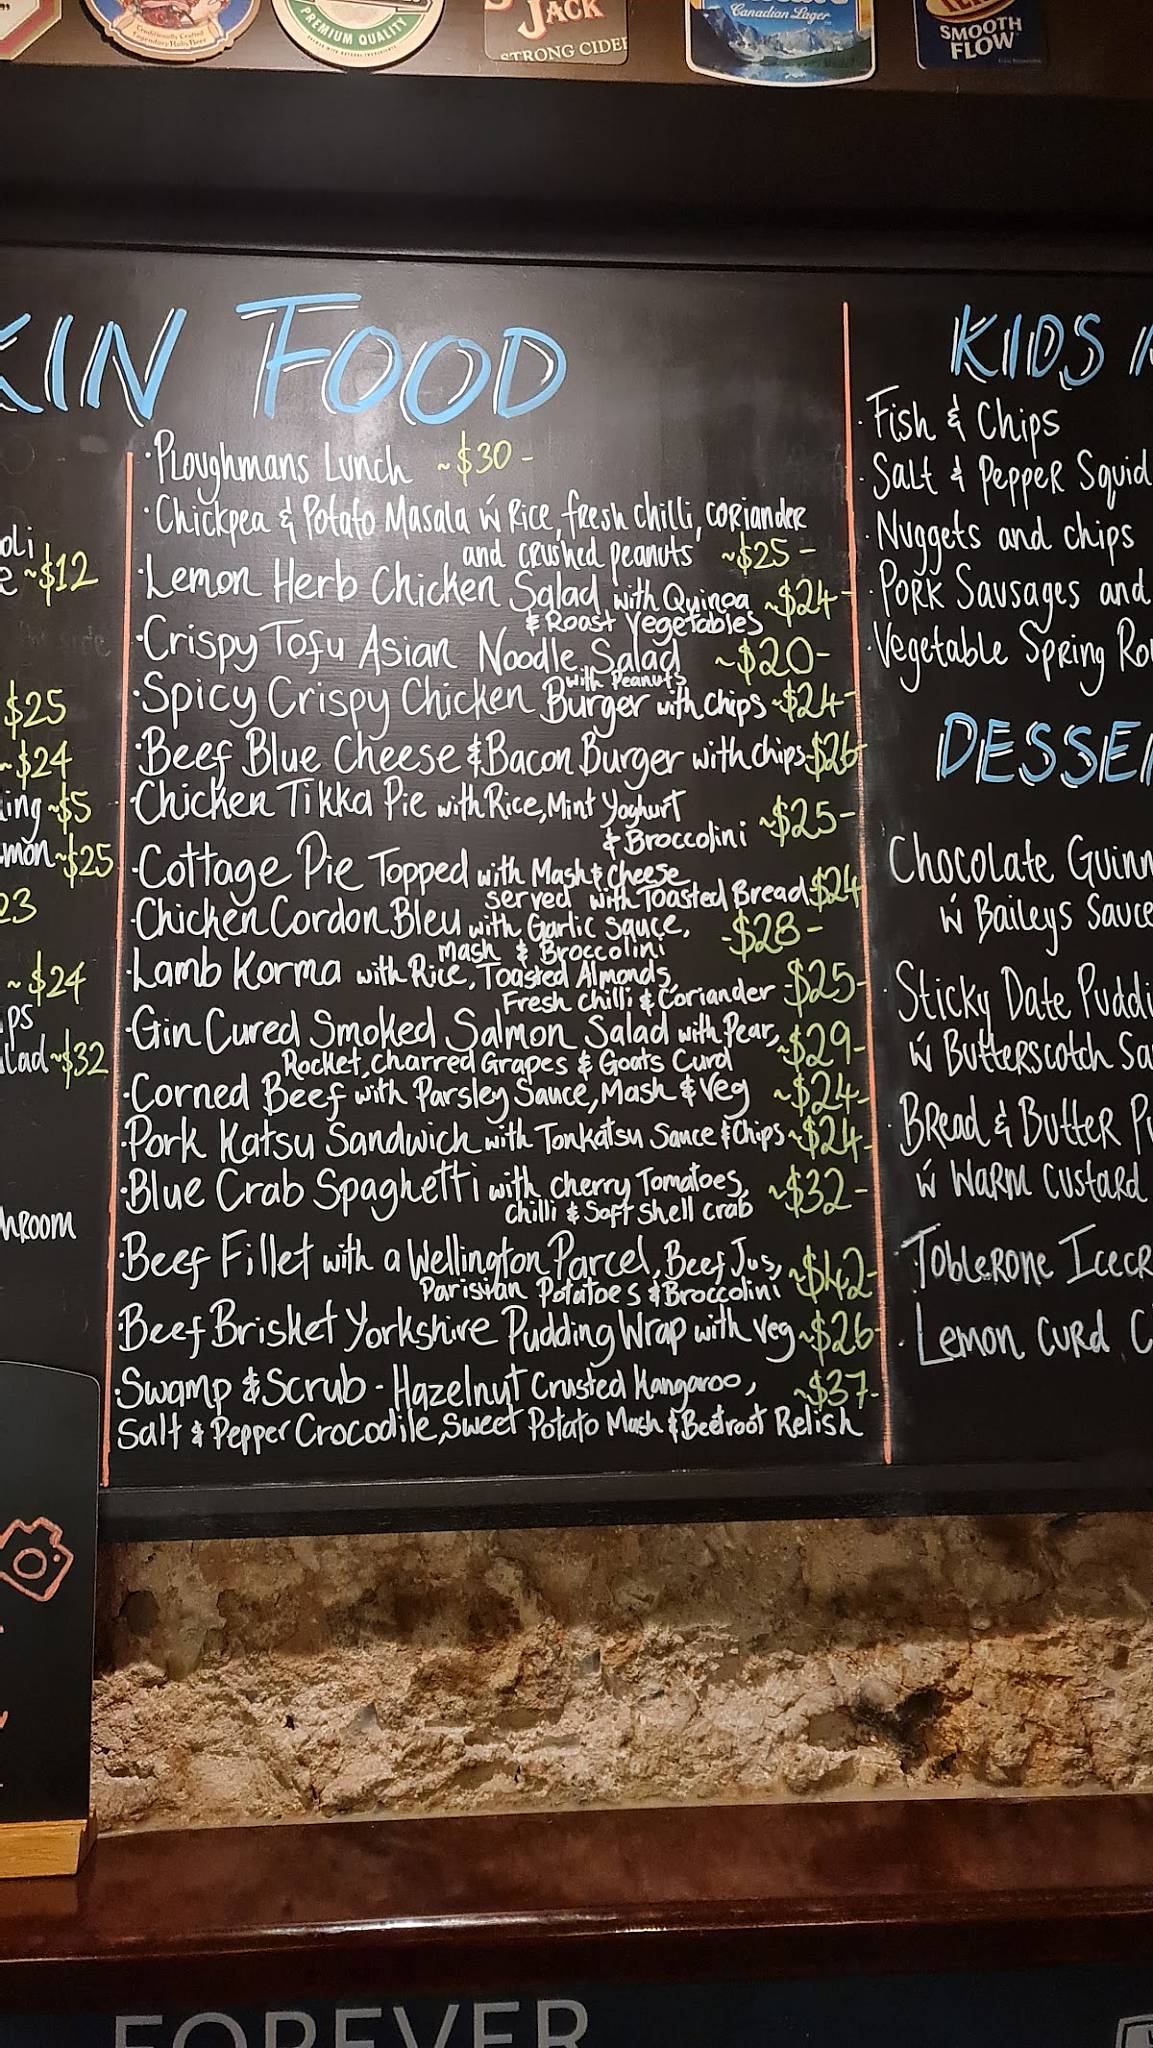 Traditionally Crafted
Legendary Hobs Beer
PREMIUM QUALITY
JACK
STRONG CIDER
Canadian Lager
SMOOTH
FLOW
KIN FOOD
· Ploughmans Lunch ~$30-
· Chickpea & Potato Masala w Rice, fresh chilli, coriander
and crushed peanuts ~$25-
· Lemon Herb Chicken Salad with Quinoa ~$24-
& Roast Vegetables
· Crispy Tofu Asian Noodle Salad ~$20-
with Peanuts
· Spicy Crispy Chicken Burger with chips ~$24-
· Beef Blue Cheese & Bacon Burger with chips $26
· Chicken Tikka Pie with Rice, Mint Yoghurt
& Broccolini ~$25-
· Cottage Pie Topped with Mash & cheese
served with Toasted Bread $24
· Chicken Cordon Bleu with Garlic sauce,
mash & Broccolini ~$28-
· Lamb Korma with Rice, Toasted Almonds,
Fresh chilli & Coriander ~$25-
· Gin Cured Smoked Salmon Salad with Pear,
Rocket, charred Grapes & Goats Curd ~$29-
· Corned Beef with Parsley Sauce, Mash & Veg ~$24-
· Pork Katsu Sandwich with Tonkatsu Sauce & Chips ~$24-
· Blue Crab Spaghetti with cherry Tomatoes,
chilli & Soft shell crab ~$32-
· Beef Fillet with a Wellington Parcel, Beef Jus,
Parisian Potatoes & Broccolini ~$42-
· Beef Brisket Yorkshire Pudding Wrap with veg ~$26-
· Swamp & Scrub - Hazelnut Crusted Kangaroo, ~$37-
Salt & Pepper Crocodile, Sweet Potato Mash & Beetroot Relish
oli
e ~$12
$25
~$24
ing ~$5
mon ~$25
23
~$24
ps
lad ~$32
hroom
KIDS
· Fish & Chips
· Salt & Pepper Squid
· Nuggets and chips
· Pork Sausages and
· Vegetable Spring Ro
DESSE
Chocolate Guinn
w Baileys Sauce
· Sticky Date Puddi
w Butterscotch Sa
· Bread & Butter Pu
w Warm Custard
· Toblerone Icecr
· Lemon Curd C
FOREVER